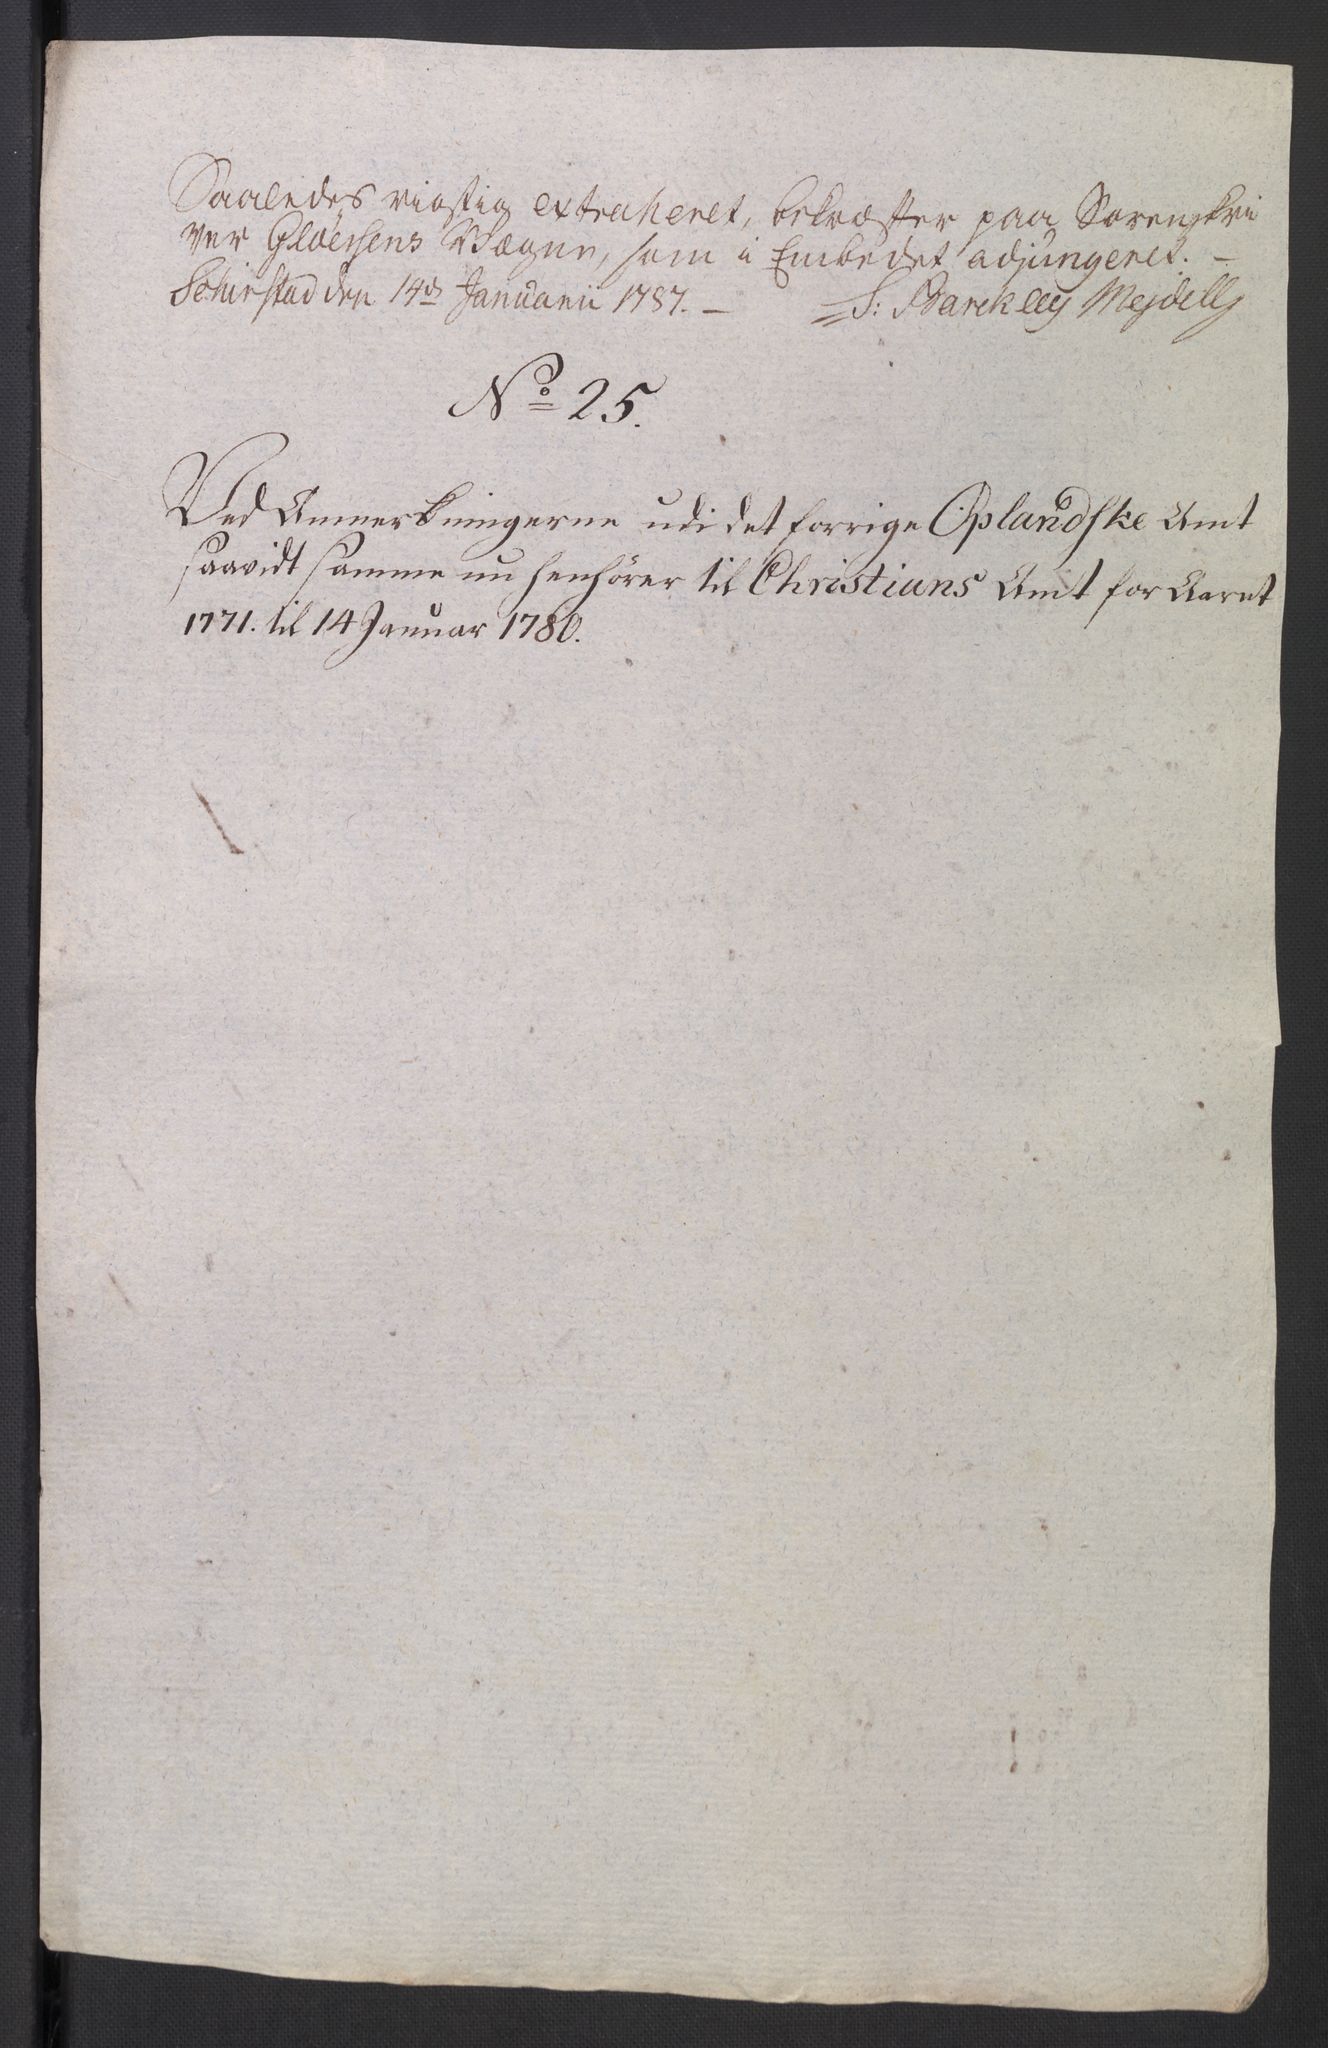 Saaledes rigtig extraheret, bekræfter paa Sorenskri
ver Gloërsens Vægne, som i Embedet adjungeret. –
Schirstad den 14de Januarii 1787. – S: Barckley Mejdell
No 25.
Ved Anmerkningerne udi det forrige Oplandske Amt
saavidt samme nu henhörer til Christians Amt for Aaret
1771. til 14 Januar 1780.